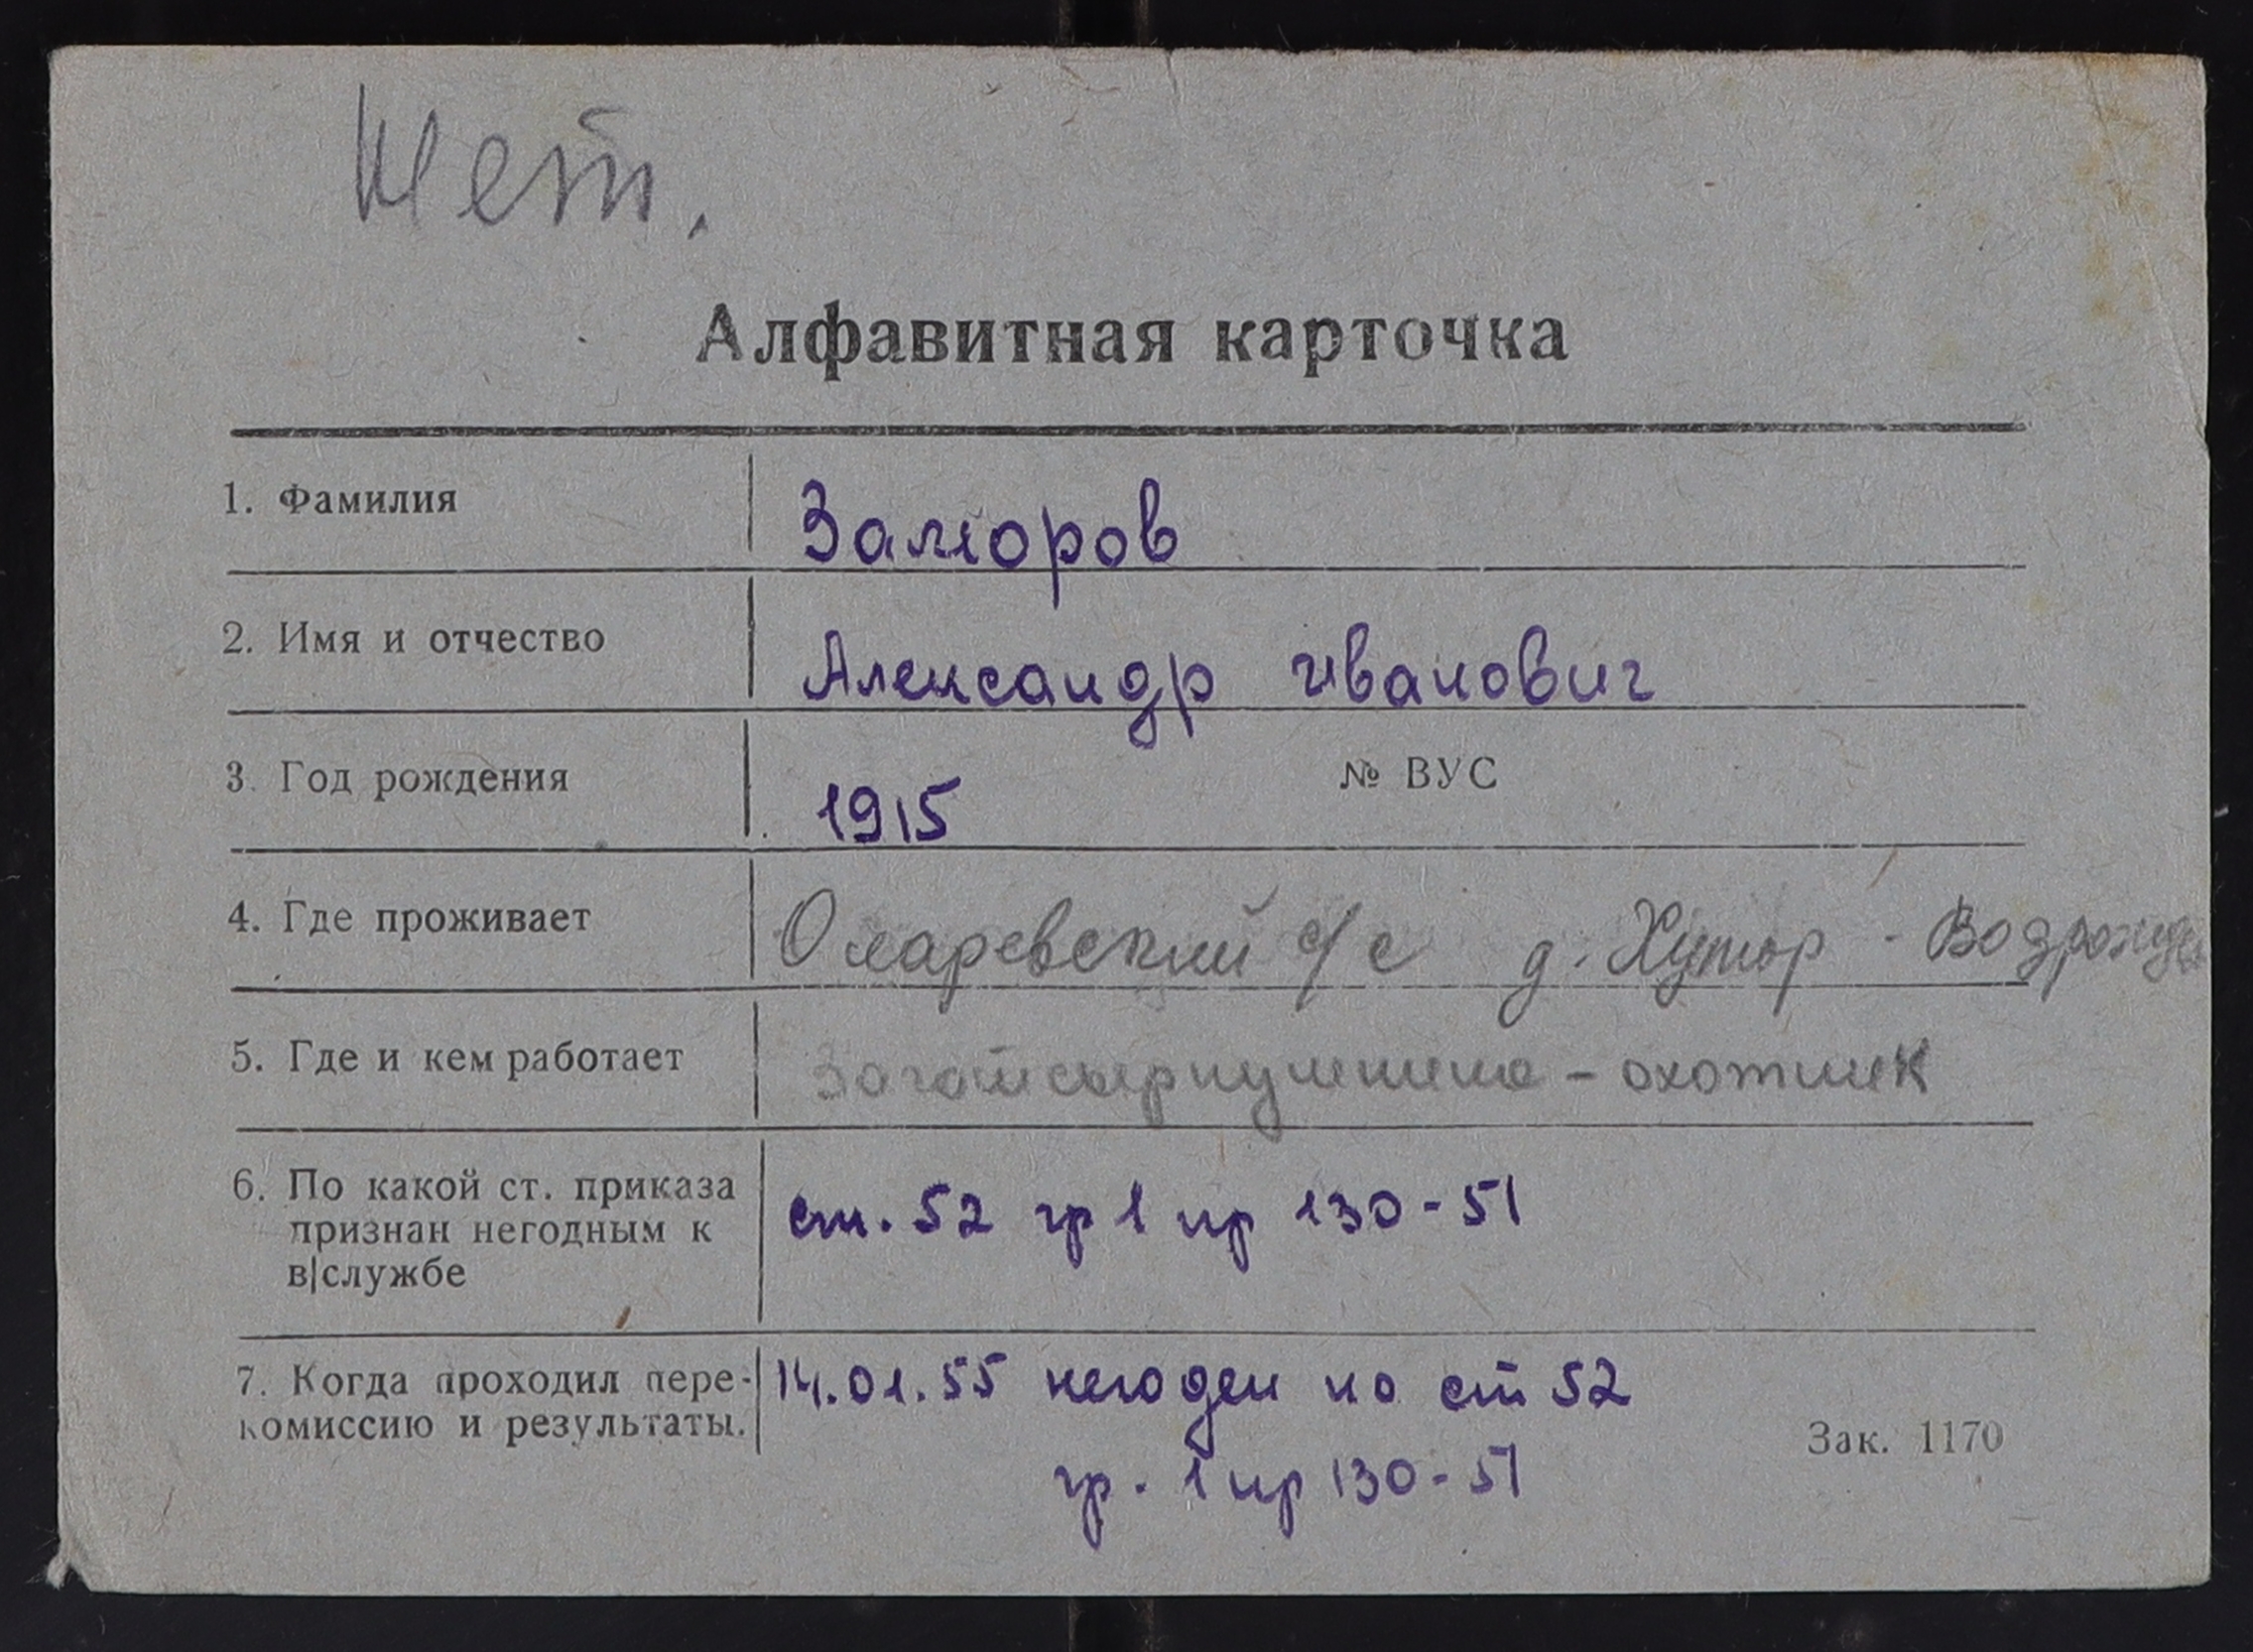 Нет.
Алфавитная карточка
1. Фамилия Заморов
2. Имя и отчество Александр Иванович
3. Год рождения 1915 № ВУС
4. Где проживает с/с д. Хутор - Возрожде
5. Где и кем работает - охотник
6. По какой ст. приказа ст. 52 гр 1 пр 130-51
признан негодным к
в|службе
7. Когда проходил пере- 14.01.55 негоден по ст 52
комиссию и результаты. Зак. 1170
гр. 1 пр 130-51